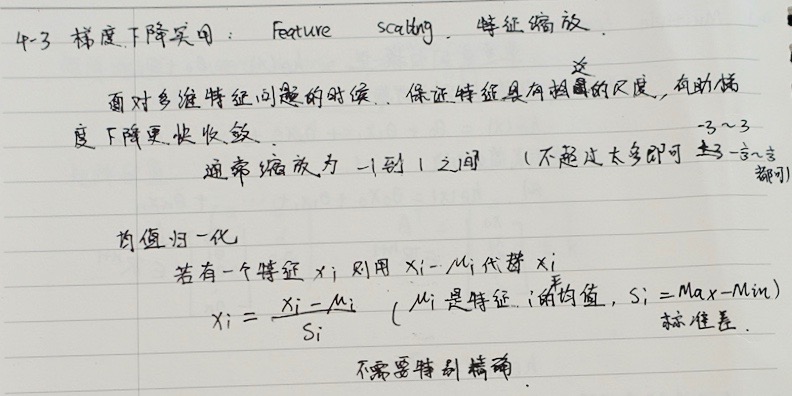 4-3 梯度下降实用: Feature scaling. 特征缩放.
面对多维特征问题的时候. 保证特征具有相近的尺度, 有助梯
度下降更快收敛.
通常缩放为 -1到1之间 (不超过太多即可 -3~3 -⅓~⅓ 都可)
均值归一化
若有一个特征 xi 则用 xi-μi代替 xi
xi = (xi-μi)/Si (μi是特征i的平均值, Si = Max-Min)
标准差.
不需要特别精确.